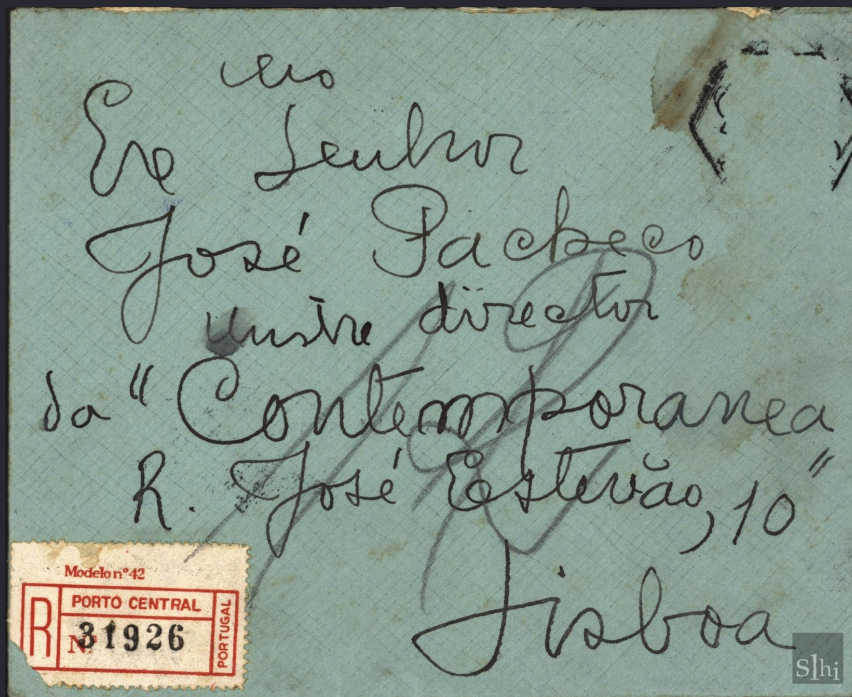 Exmo Senhor
José Pacheco
ilustre director
da "Contemporanea"
R. José Estevão, 10
Lisboa
Modelo nº 42
R
PORTO CENTRAL
N. 31926
PORTUGAL
S|hi